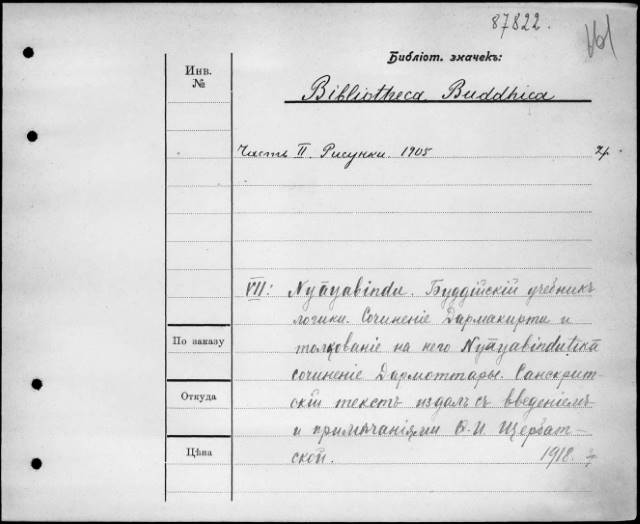 87822.
Библіот. значекъ:
Инв.
№
Bibliotheca Buddhica
Часть II. Рисунки. 1905
VII: Nyāyabindu. Буддійскій учебникъ
логики. Сочиненіе Дармакирти и
толкованіе на него Nyāyabinduṭīkā
По заказу
сочиненіе Дармоттары. Санскрит-
Откуда
скій текстъ издалъ съ введеніемъ
и примѣчаніями Ѳ. И. Щербат-
Цѣна
ской. 1918.